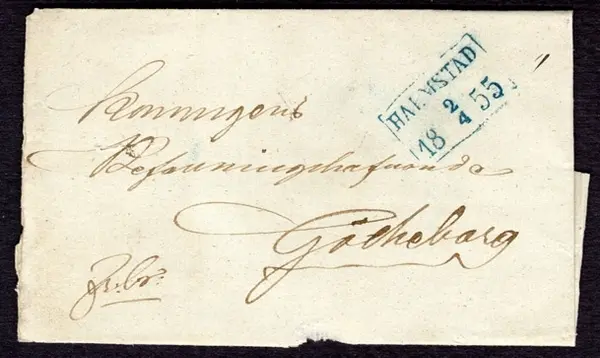 HALMSTAD
18 2/4 55
Konungens
Befallningshafvande
Götheborg
Fr. br.